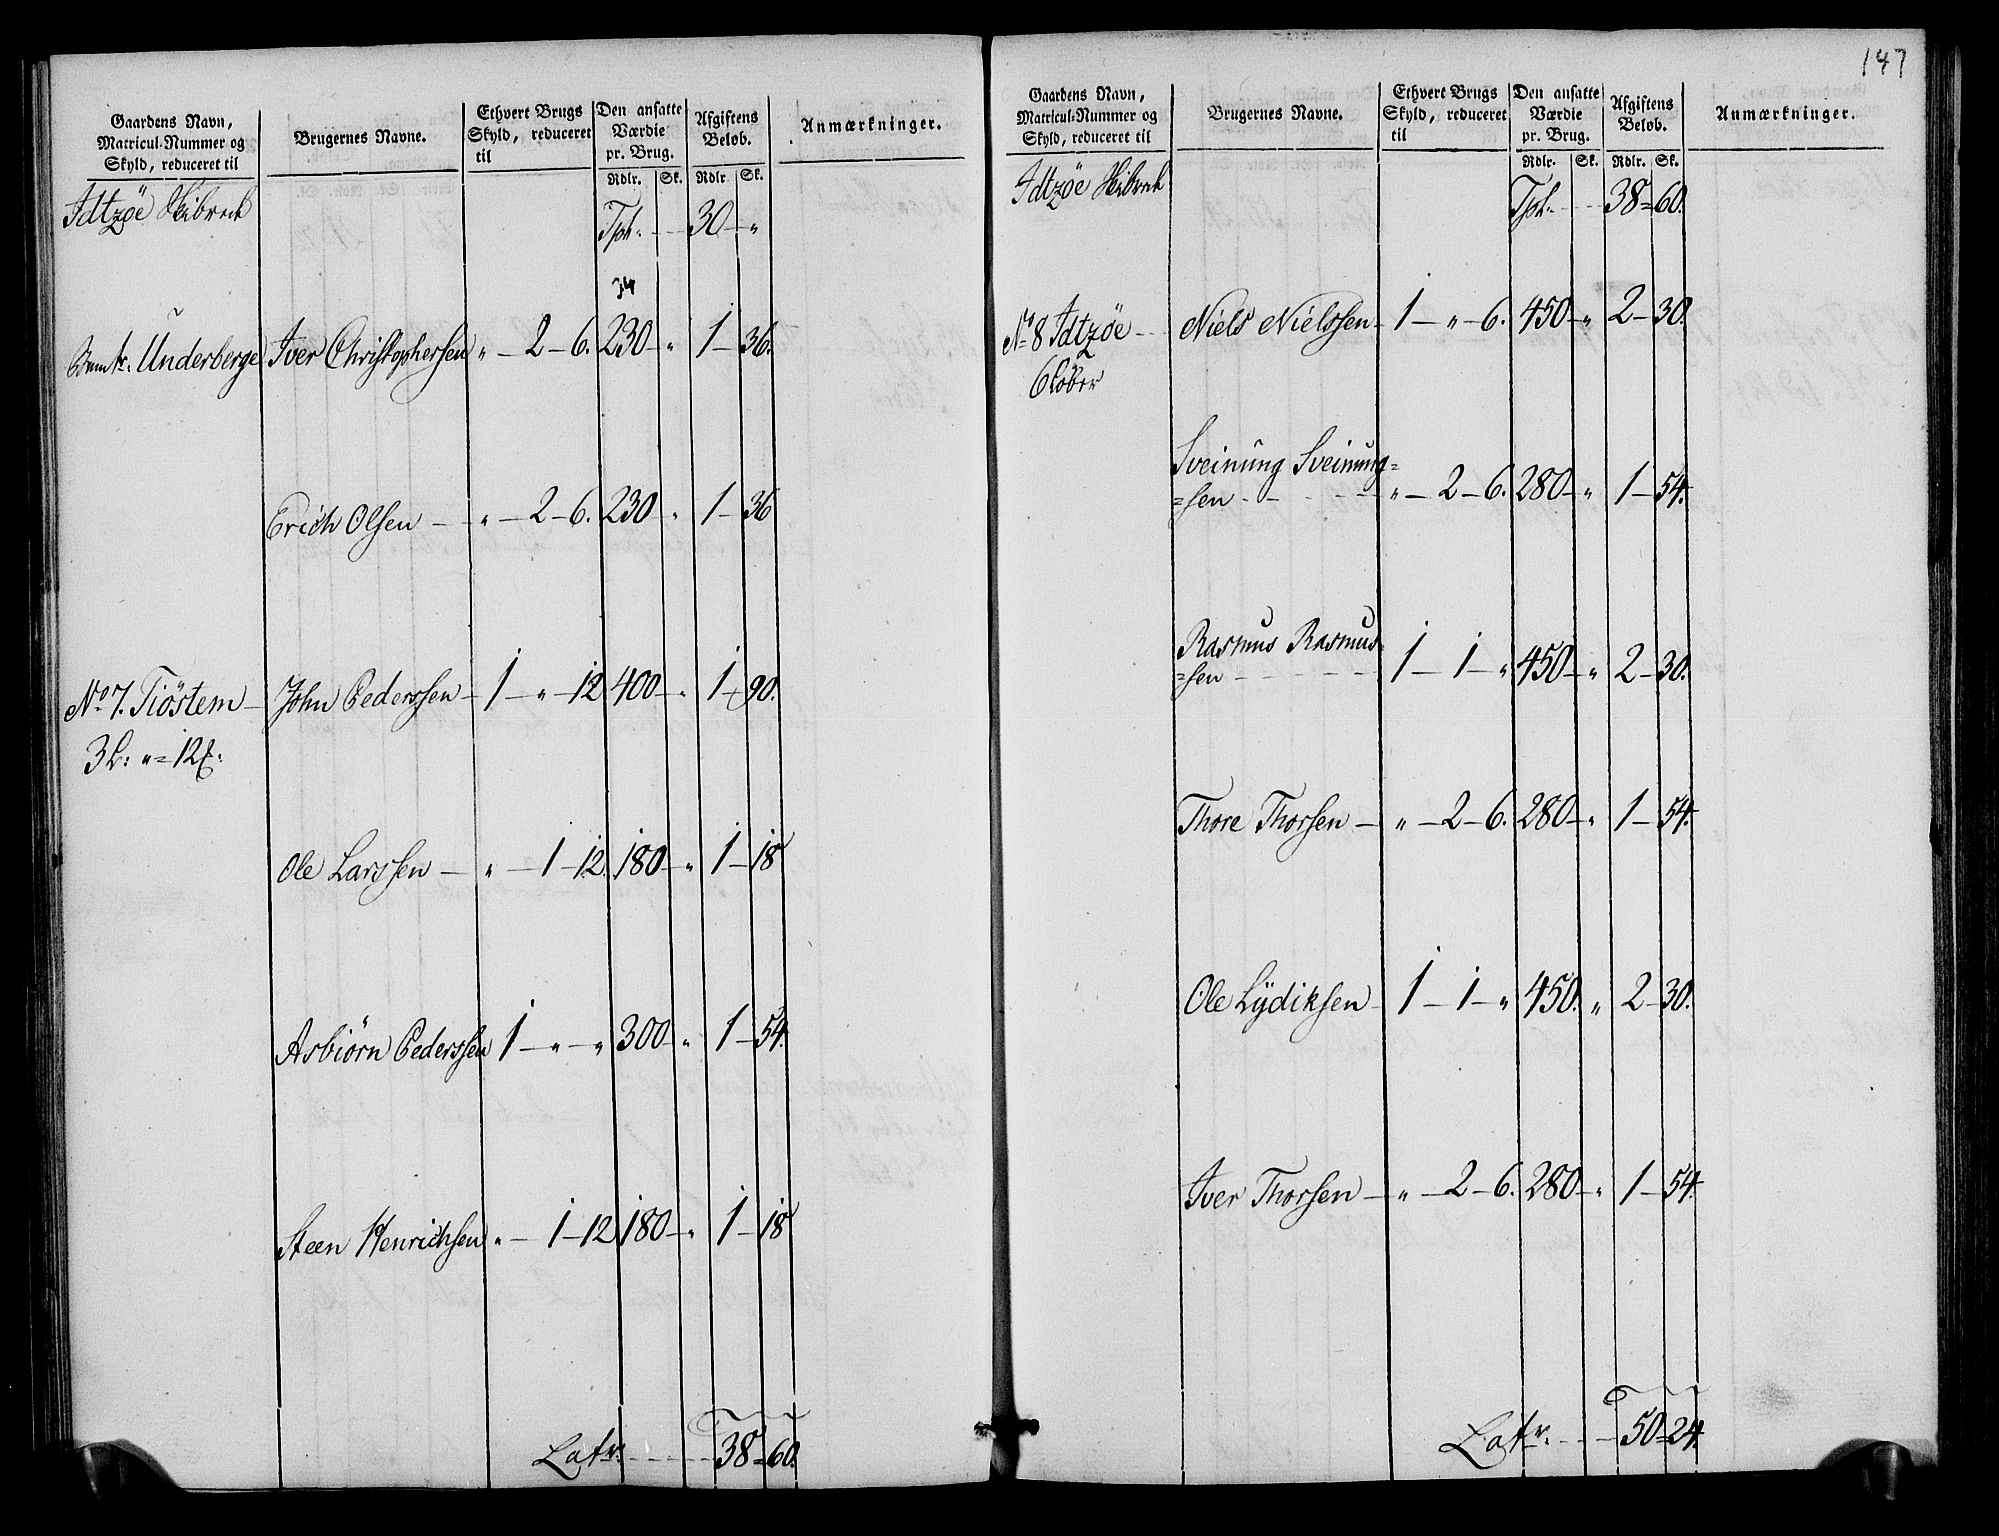 Gaardens Navn,
Matricul-Nummer og
Skyld, reduceret til
Brugernes Navne.
Ethvert Brugs
Skyld, reduceret
til
Den ansatte
Værdie
pr. Brug.
Rdlr. Sk.
Afgiftens
Beløb.
Rdlr Sk.
Anmærkninger.
Idtzöe Skibred Tpt. 30 "
34
Underberge Iver Christophersen " 2 6. 230 " 1 36.
Erich Olsen " 2 6. 230 " 1 36
No 7. Tiöstem John Pederssen 1 " 12 400 " 1 90.
3 L: " 12
Ole Larssen " 1 12 180 " 1 18
Asbiörn Pederssen 1 " " 300 " 1 54.
Steen Henrichsen " 1 12 180 " 1 18
Latr. 38 60.
147
Gaardens Navn,
Matricul-Nummer og
Skyld, reduceret til
Brugernes Navne.
Ethvert Brugs
Skyld, reduceret
til
Den ansatte
Værdie
pr. Brug.
Rdlr. Sk.
Afgiftens
Beløb.
Rdlr. Sk.
Anmærkninger.
Idtzöe Skibred Tpt. 38 60.
No 8 Idtzöe Niels Nielssen 1 " 6. 450 " 2 30.
6 Löber
Sveinung Sveinung=
=sen " 2 6. 280 " 1 54.
Rasmus Rasmus=
=sen 1 1 " 450 " 2 30.
Thore Thorsen " 2 6. 280 " 1 54.
Ole Lÿdiksen 1 1 " 450 " 2 30.
Iver Thorsen " 2 6. 280 " 1 54.
Latr. 50 24.